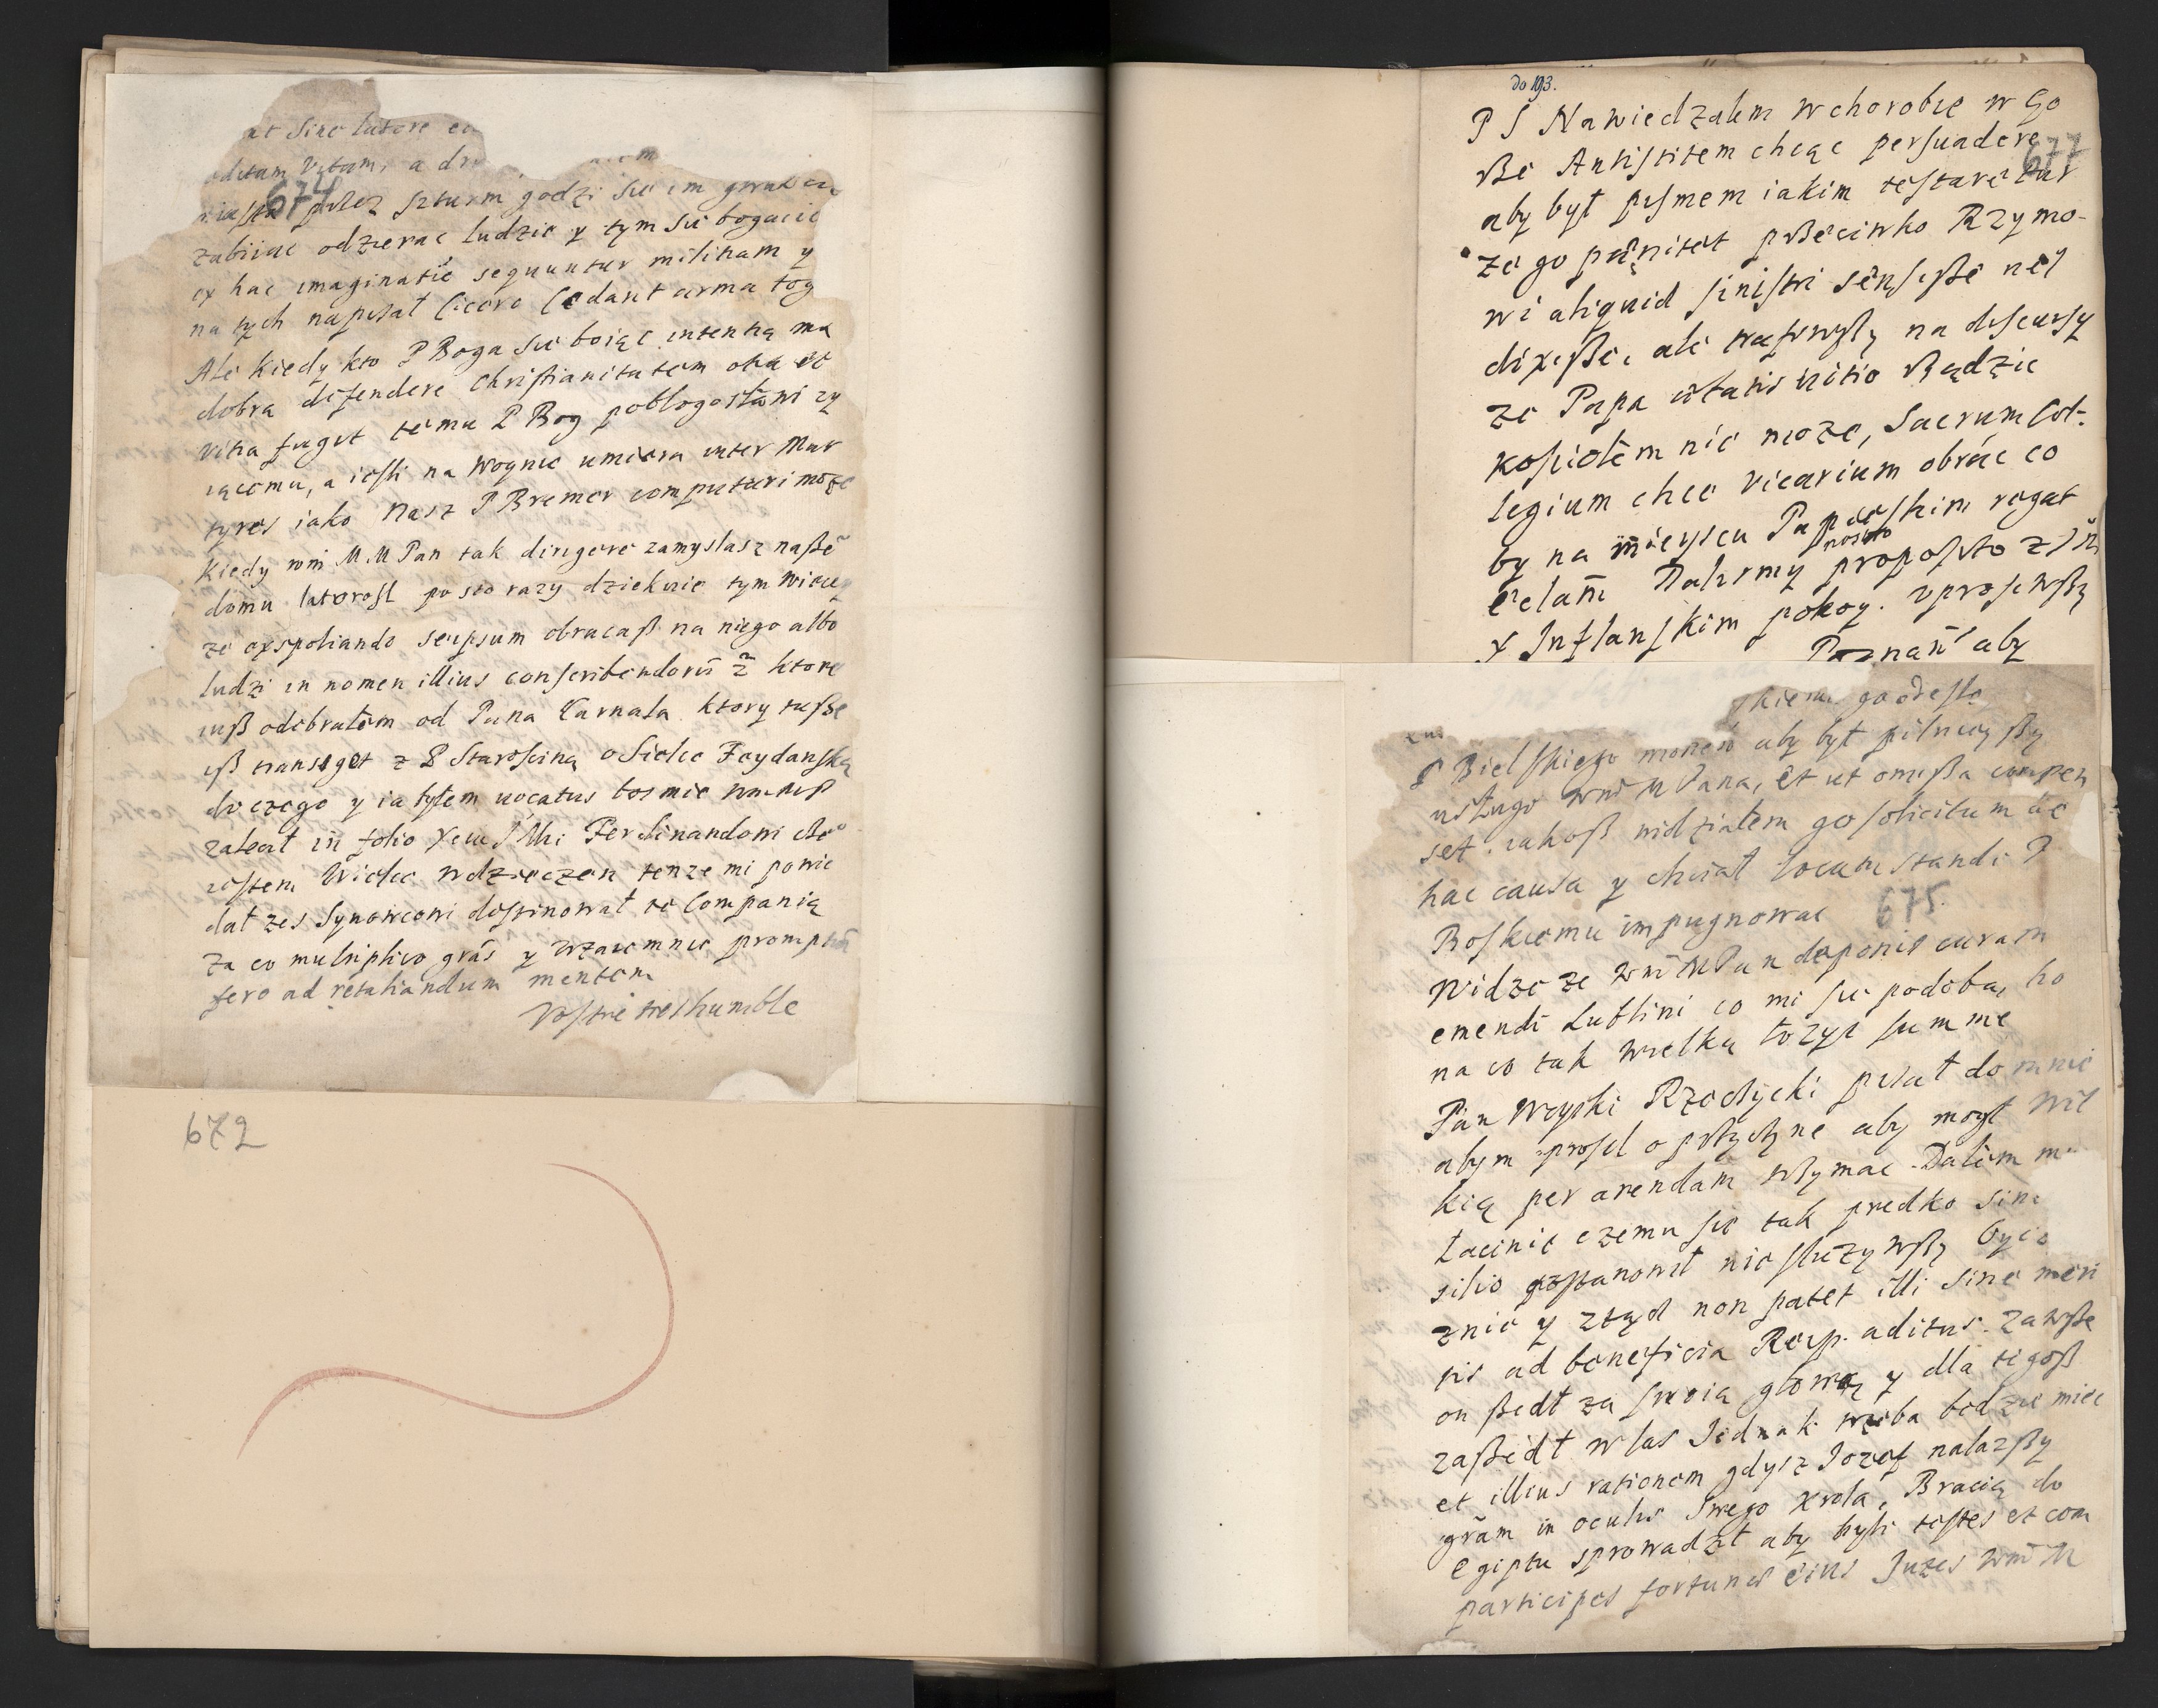 at sine lutore
oditam Vitam, a
674
przez szturm godzi sie im gwałcic
zabiiac odzierac ludzie y tym sie bogacic
ex hac imaginatiē sequuntur militiam y
na tych napisał Cicero Cedant arma tog
Ale kiedy kto P Boga sie boiąc intentią ma
dobra defendere Christianitatem otia et
vitia fugit temu P Bog pobłogosławi zy
iącemu, a iesli na Woynie umiera inter Mar
tyres iako Nasz P Bremer computari może
Kiedy wm M. M Pan tak dirigere zamyslasz naßē
domu latorosl po sto razy dziekuie tym wiecy
ze exspoliando seipsum obracaß na niego albo
ludzi in nomen illius conscribendorū z ktore
iuß odebrałem od Pana Karnala ktory tuße
iß transiget z P Starosciną o Sielce Feydanską
do czego y ia byłem vocatus bo mie
zalecał in folio Xciu JMci Ferdinandowi
iestem Wielce wdzieczen tenze mi powie
dał zes Synowcowi destinował te Companią
Za co multiplico grās y wzaiemnie promptam
fero ad retaliandum mentem
Vostre treshumble
672
do 193.
P S Nawiedzalem w chorobie w Go
ße Antistitem chcąc persuadere
677
aby był pismem iakim testaretur
ze go pænitet przeciwko Rzymo-
wi aliquid sinistri sensiße vel
dixiße, ale trafiwßy na discursy
ze Papa ætatis vitio Rządzic
kosciołem nie moze, Sacrum Col-
legium chce vicarium obrac co
by na mieyscu Papieskim regat
nosuto
Inflanskim pokoy. uprosiwßy
Poznań aby
skiem go odesła
P Bielskiego monen aby był pilnieyßy
usługo Wm M Pana, et ut omißa compen
set. iakoß widziałem go solicitum de
hac causa y chciał locum standi P
Boskiemu impugnowac
675.
Widze ze Wm M Pan deponis curam
emendi Lublini co mi sie podoba, bo
na co tak wielką łozyc summe
Pan Woyski Rzeczycki pisał do mnie
abym prosił o przyczyne aby mogł Wil
kią per arendam trzymac. Dałem mu
Łacinie czemu sie tak predko sine
silio postanowił nie służywßy Oyc
znie y ztąd non patet illi sine meri
tis ad beneficia Reip. aditus. Zawße
on ßedł za swoią głową y dla tegoß
zaßedł w las Jednak trzeba bedzie miec
et illius rationem gdysz Jozef nalazßy
grām in oculis swego Krola, Bracią do
Egiptu sprowadził aby byli testes et com
participes fortunæ eius Juzes Wm M